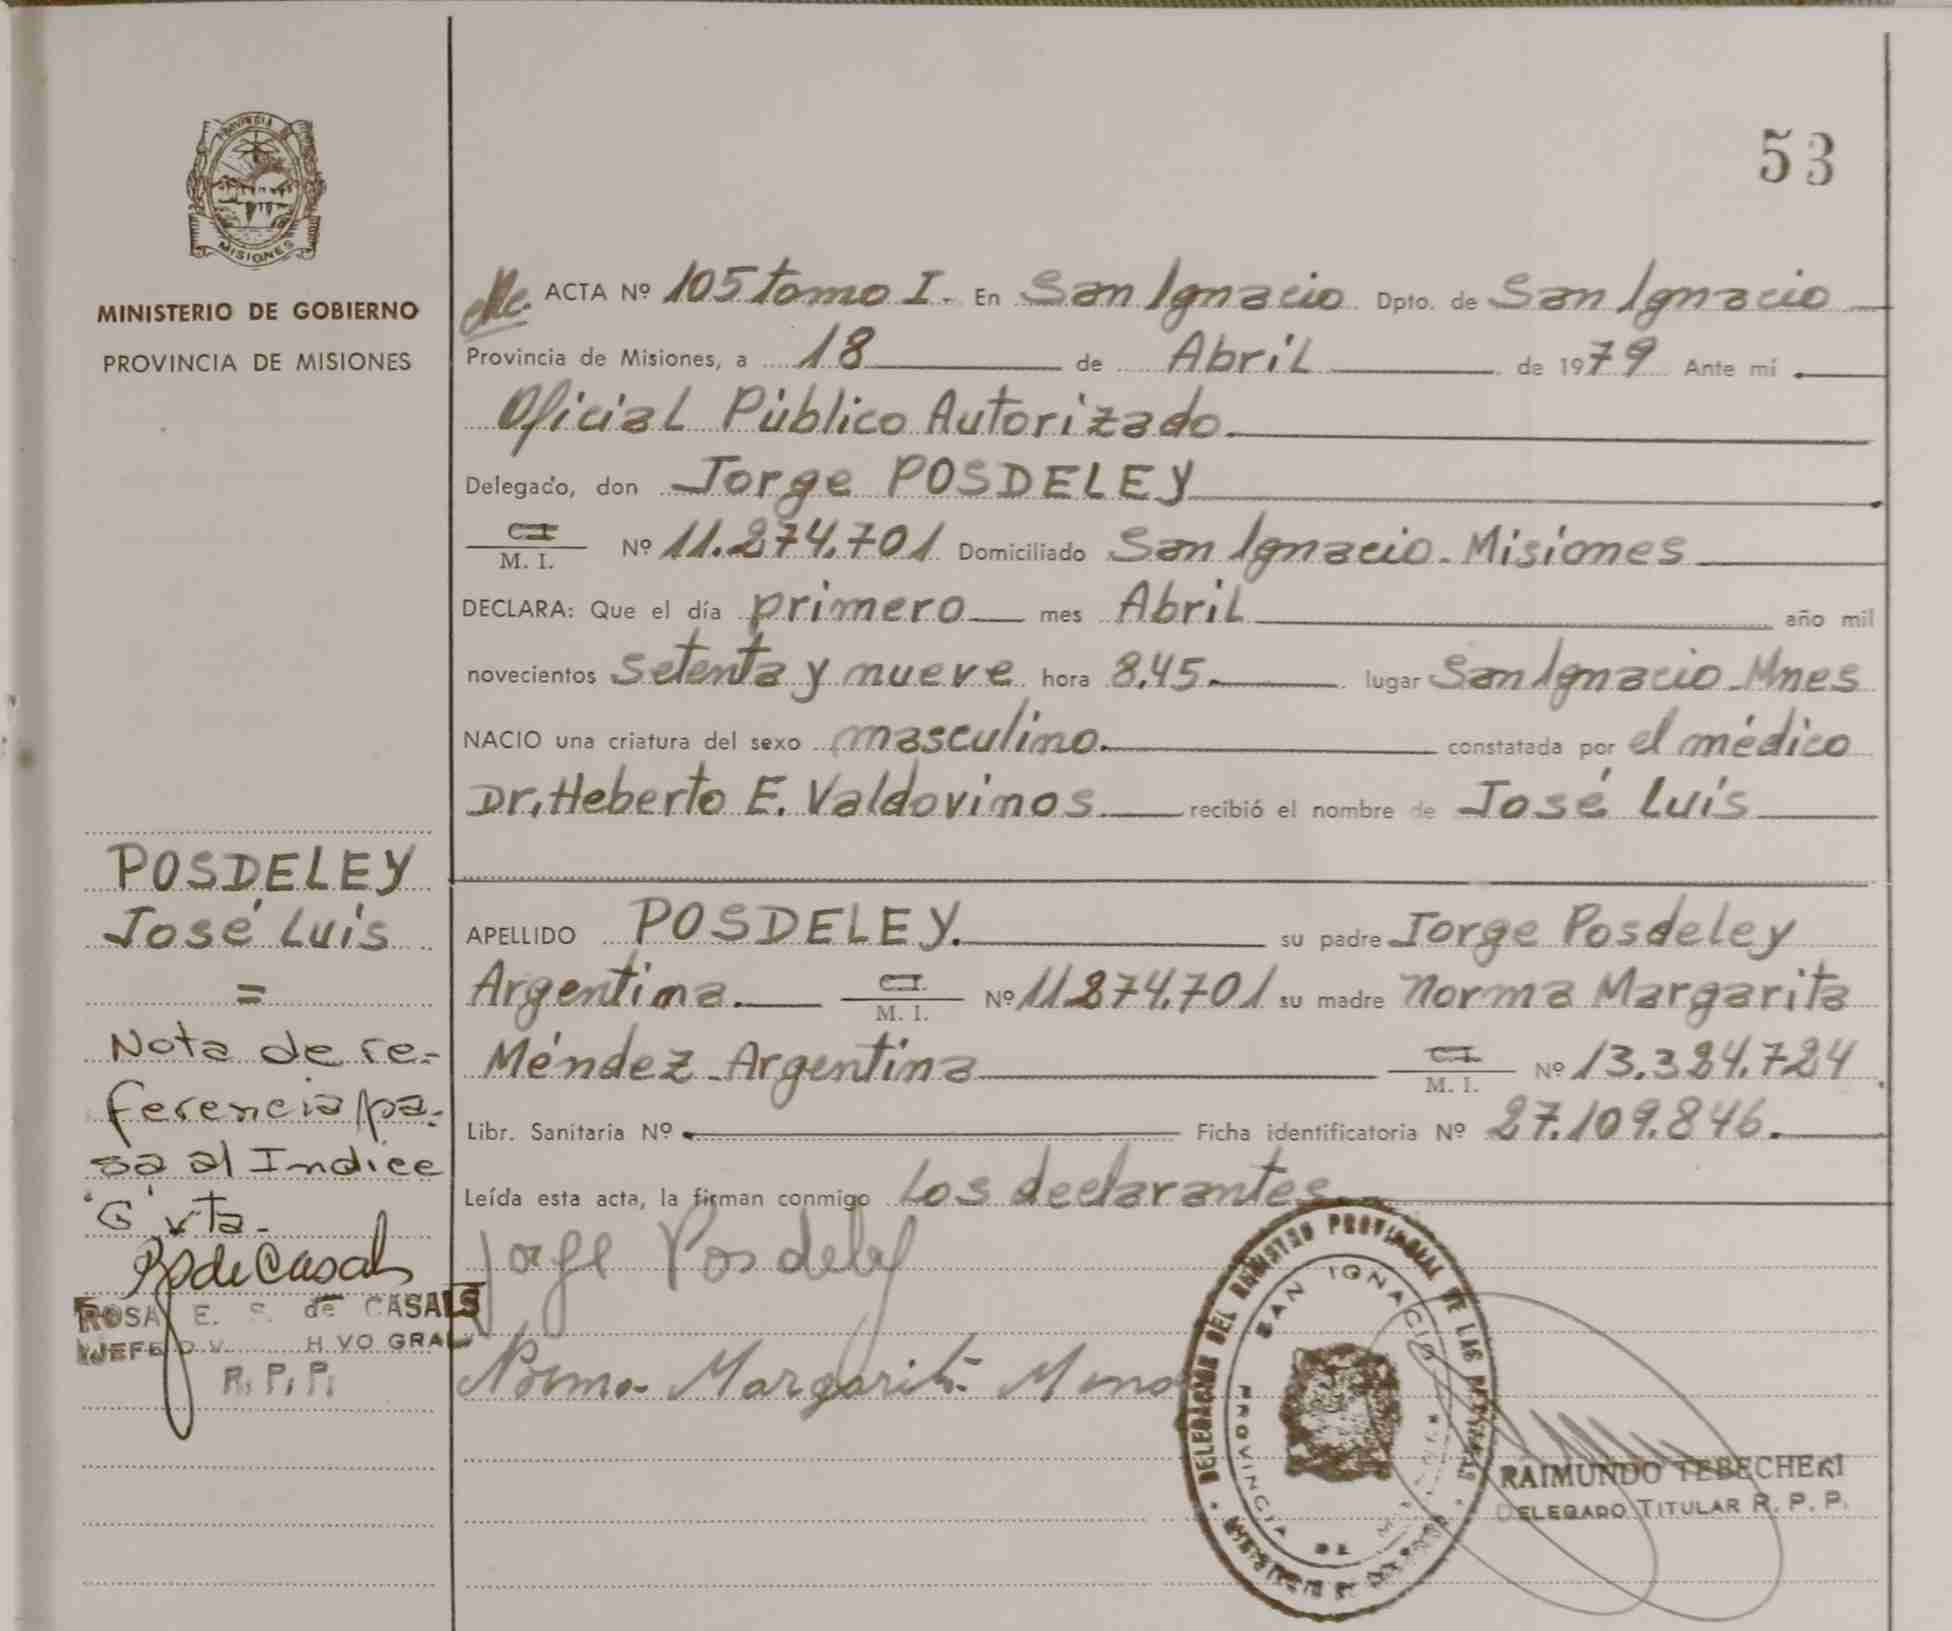 PROVINCIA DE
MISIONES
MINISTERIO DE GOBIERNO
PROVINCIA DE MISIONES
53
ACTA Nº 105 tomo I. En San Ignacio Dpto. de San Ignacio
Provincia de Misiones, a 18 de Abril de 1979 Ante mí
Oficial Público Autorizado
Delegado, don Jorge POSDELEY
C I
M. I. Nº 11.274.701 Domiciliado San Ignacio - Misiones
DECLARA: Que el día primero mes Abril año mil
novecientos setenta y nueve hora 8,45 lugar San Ignacio - Mnes
NACIO una criatura del sexo masculino. constatada por el médico
Dr. Heberto E. Valdovinos recibió el nombre de José Luis
APELLIDO POSDELEY. su padre Jorge Posdeley
Argentina. C.I.
M. I. Nº 11.274.701 su madre Norma Margarita
Méndez - Argentina C I
M. I. Nº 13.324.724
Libr. Sanitaria Nº Ficha identificatoria Nº 27.109.846.
Leída esta acta, la firman conmigo los declarantes
Jorge Posdeley
Norma Margarita
POSDELEY
José Luis
=
Nota de re-
ferencia pa-
sa al Indice
"G" vta.
ROSA E. S. de CASALS
R. P. P.
DELEGACION DEL REGISTRO PROVINCIAL DE LAS PERSONAS
SAN IGNACIO
PROVINCIA DE
RAIMUNDO TEBECHERI
DELEGADO TITULAR R. P. P.